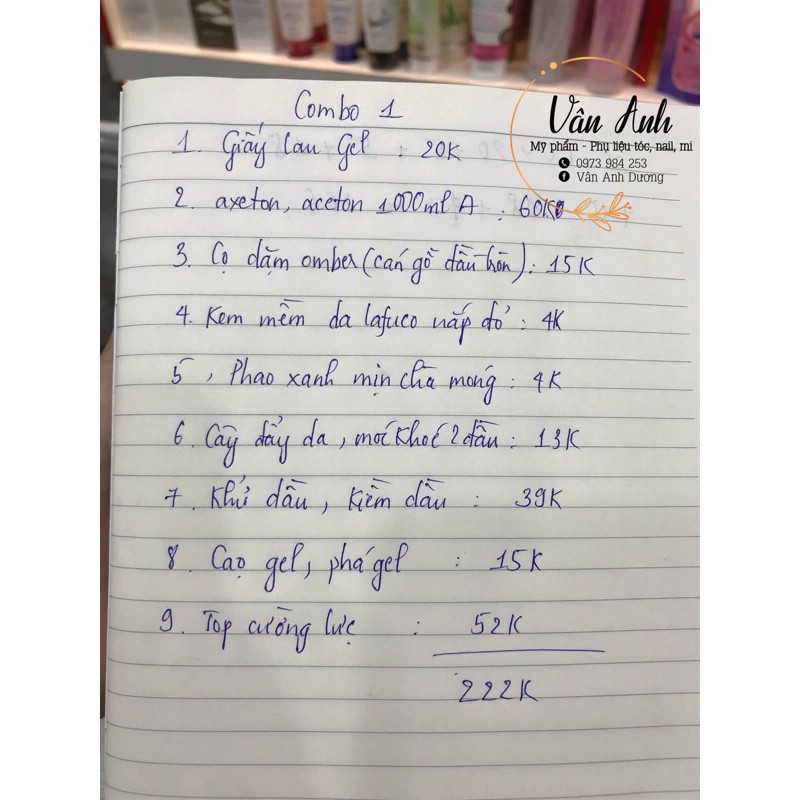 Combo 1
Vân Anh
Mỹ phẩm - Phụ liệu tóc, nail, mi
0973 984 253
Vân Anh Dương
1. Giấy lau Gel : 20K
2. axeton, aceton 1000ml A : 60K
3. Cọ dặm omber (cán gỗ đầu tròn) : 15K
4. Kem mềm da lafuco nắp đỏ : 4K
5, Phao xanh mịn chà móng : 4K
6. Cây đẩy da, móc khoé 2 đầu : 13K
7. Khử dầu, kiềm dầu : 39K
8. Cạo gel, phá gel : 15K
9. Top cường lực : 52K
222K